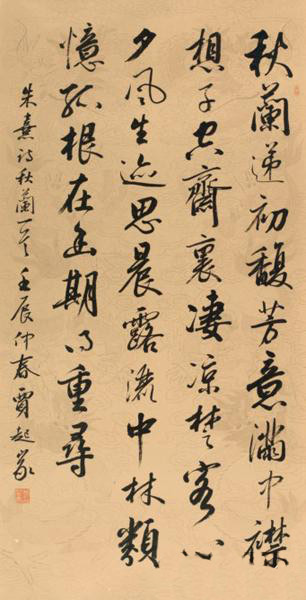 秋蘭遞初馥芳意滿中襟
想子空齋裏凄凉楚客心
夕風生遠思晨露流中林類
憶孤根在幽期得重尋
朱熹詩秋蘭一首 壬辰仲春賈起家